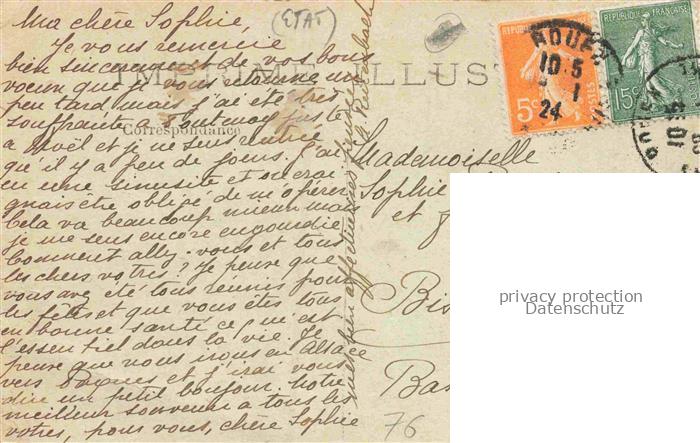 Ma chère Sophie,
Je vous remercie
bien sincèrement de vos bons
voeux que je vous retourne un
peu tard mais j'ai été très
souffrante à Fontenay juste
à Noël et je ne suis rentrée
qu'il y a peu de jours. J'ai
eu une sinusite et on crai
gnait être obligé de m'opérer
Cela va beaucoup mieux mais
je me sens encore engourdie
Comment allez-vous et tous
les chers vôtres? Je pense que
vous avez été tous réunis pour
les fêtes et que vous êtes tous
en bonne santé ce qu'est
l'essentiel dans la vie. Je
pense que nous irons en Alsace
vers Pâques et j'irai vous
dire un petit bonjour. Notre
meilleur souvenir à tous les
vôtres, pour vous, chère Sophie
mes bien affectueuses
(ETAT)
IMPRIMÉ ILLUST
Correspondance
Mademoiselle
Sophie
et
Bis
Bas
76
REPUBLIQUE FRANÇAISE
5c
POSTES
REPUBLIQUE FRANÇAISE
15c
ROUEN
10 45
1
24
privacy protection
Datenschutz